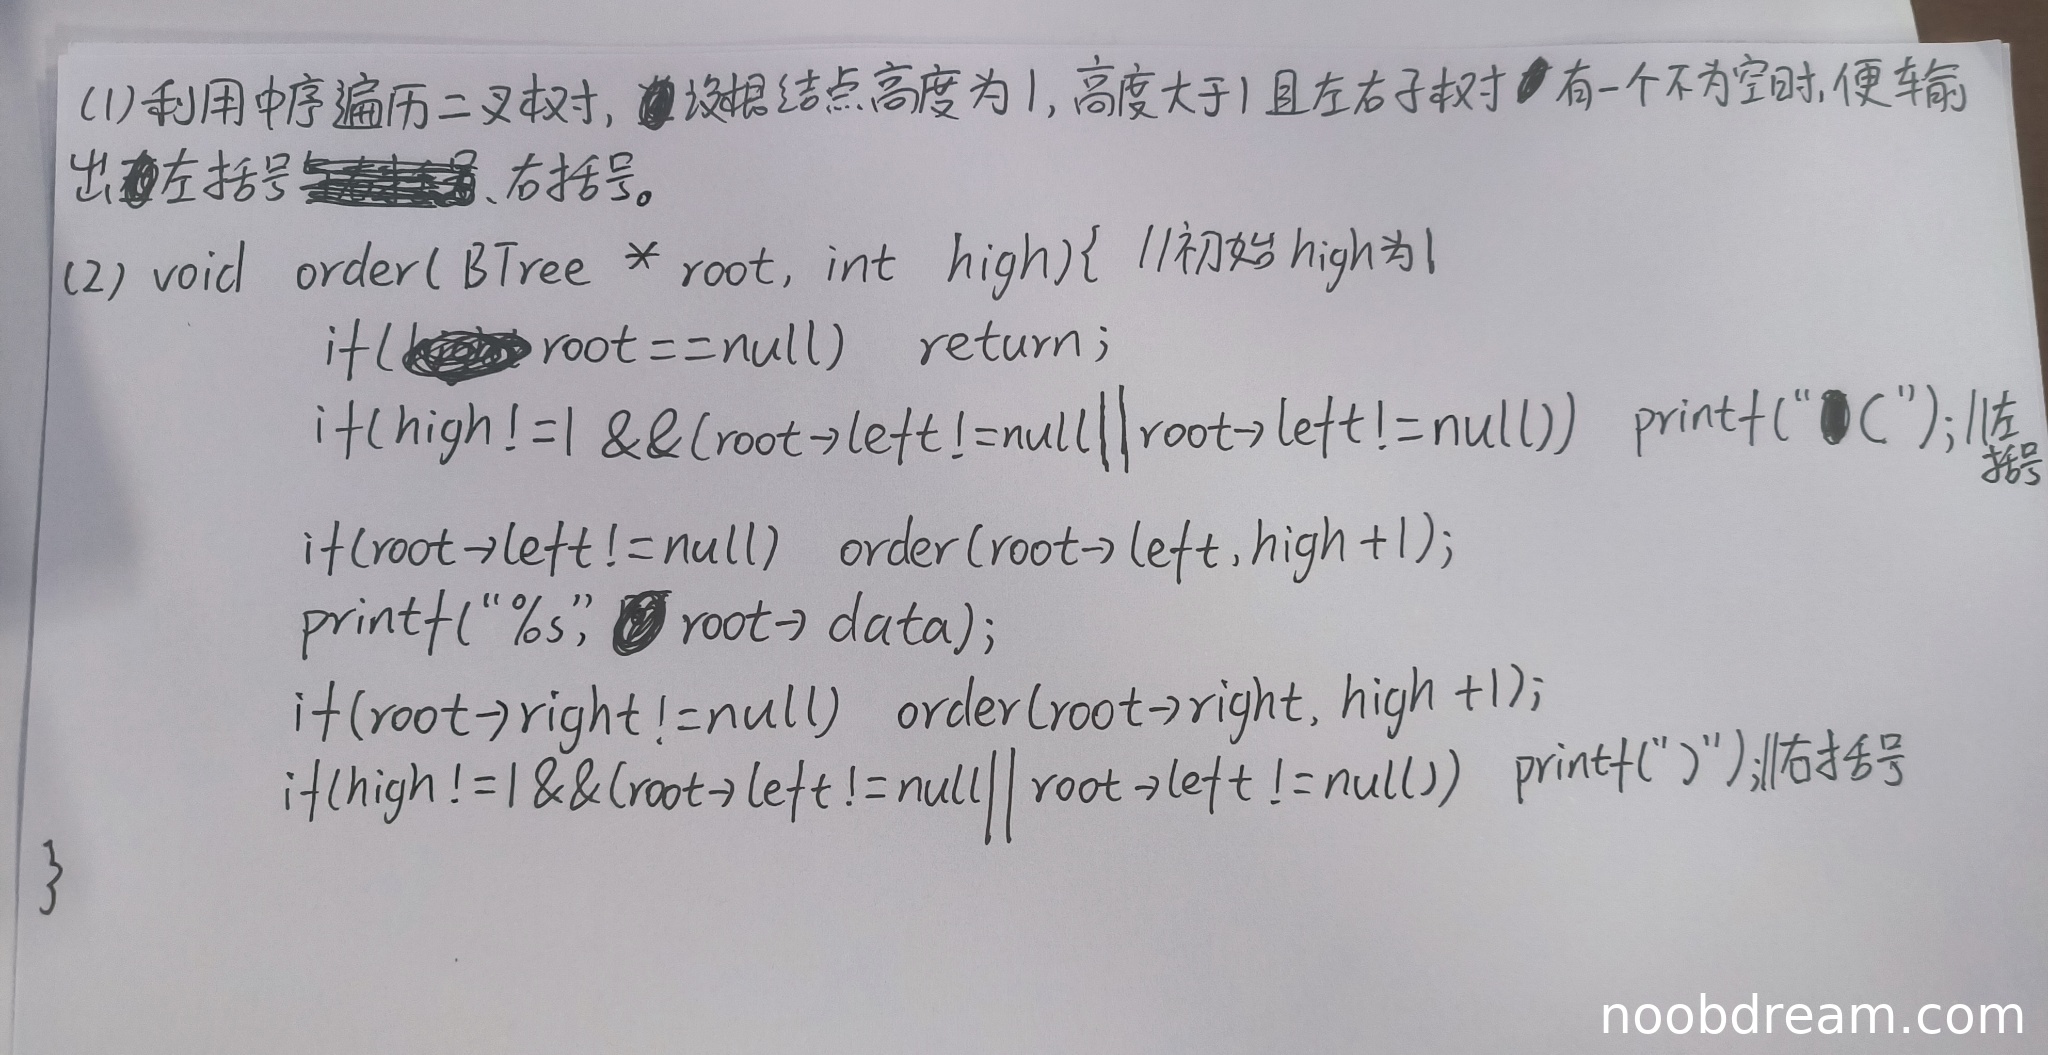 (1)利用中序遍历二叉树,设根结点高度为1,高度大于1且左右子树有一个不为空时,便输
出左括号、右括号。
(2) void order(BTree * root, int high){ //初始high为1
if(root==null) return;
if(high!=1 &&(root->left!=null||root->left!=null)) printf("(");//左
括号
if(root->left!=null) order(root->left,high+1);
printf("%s", root->data);
if(root->right!=null) order(root->right, high+1);
if(high!=1&&(root->left!=null||root->left!=null)) printf(")");//右括号
}
noobdream.com